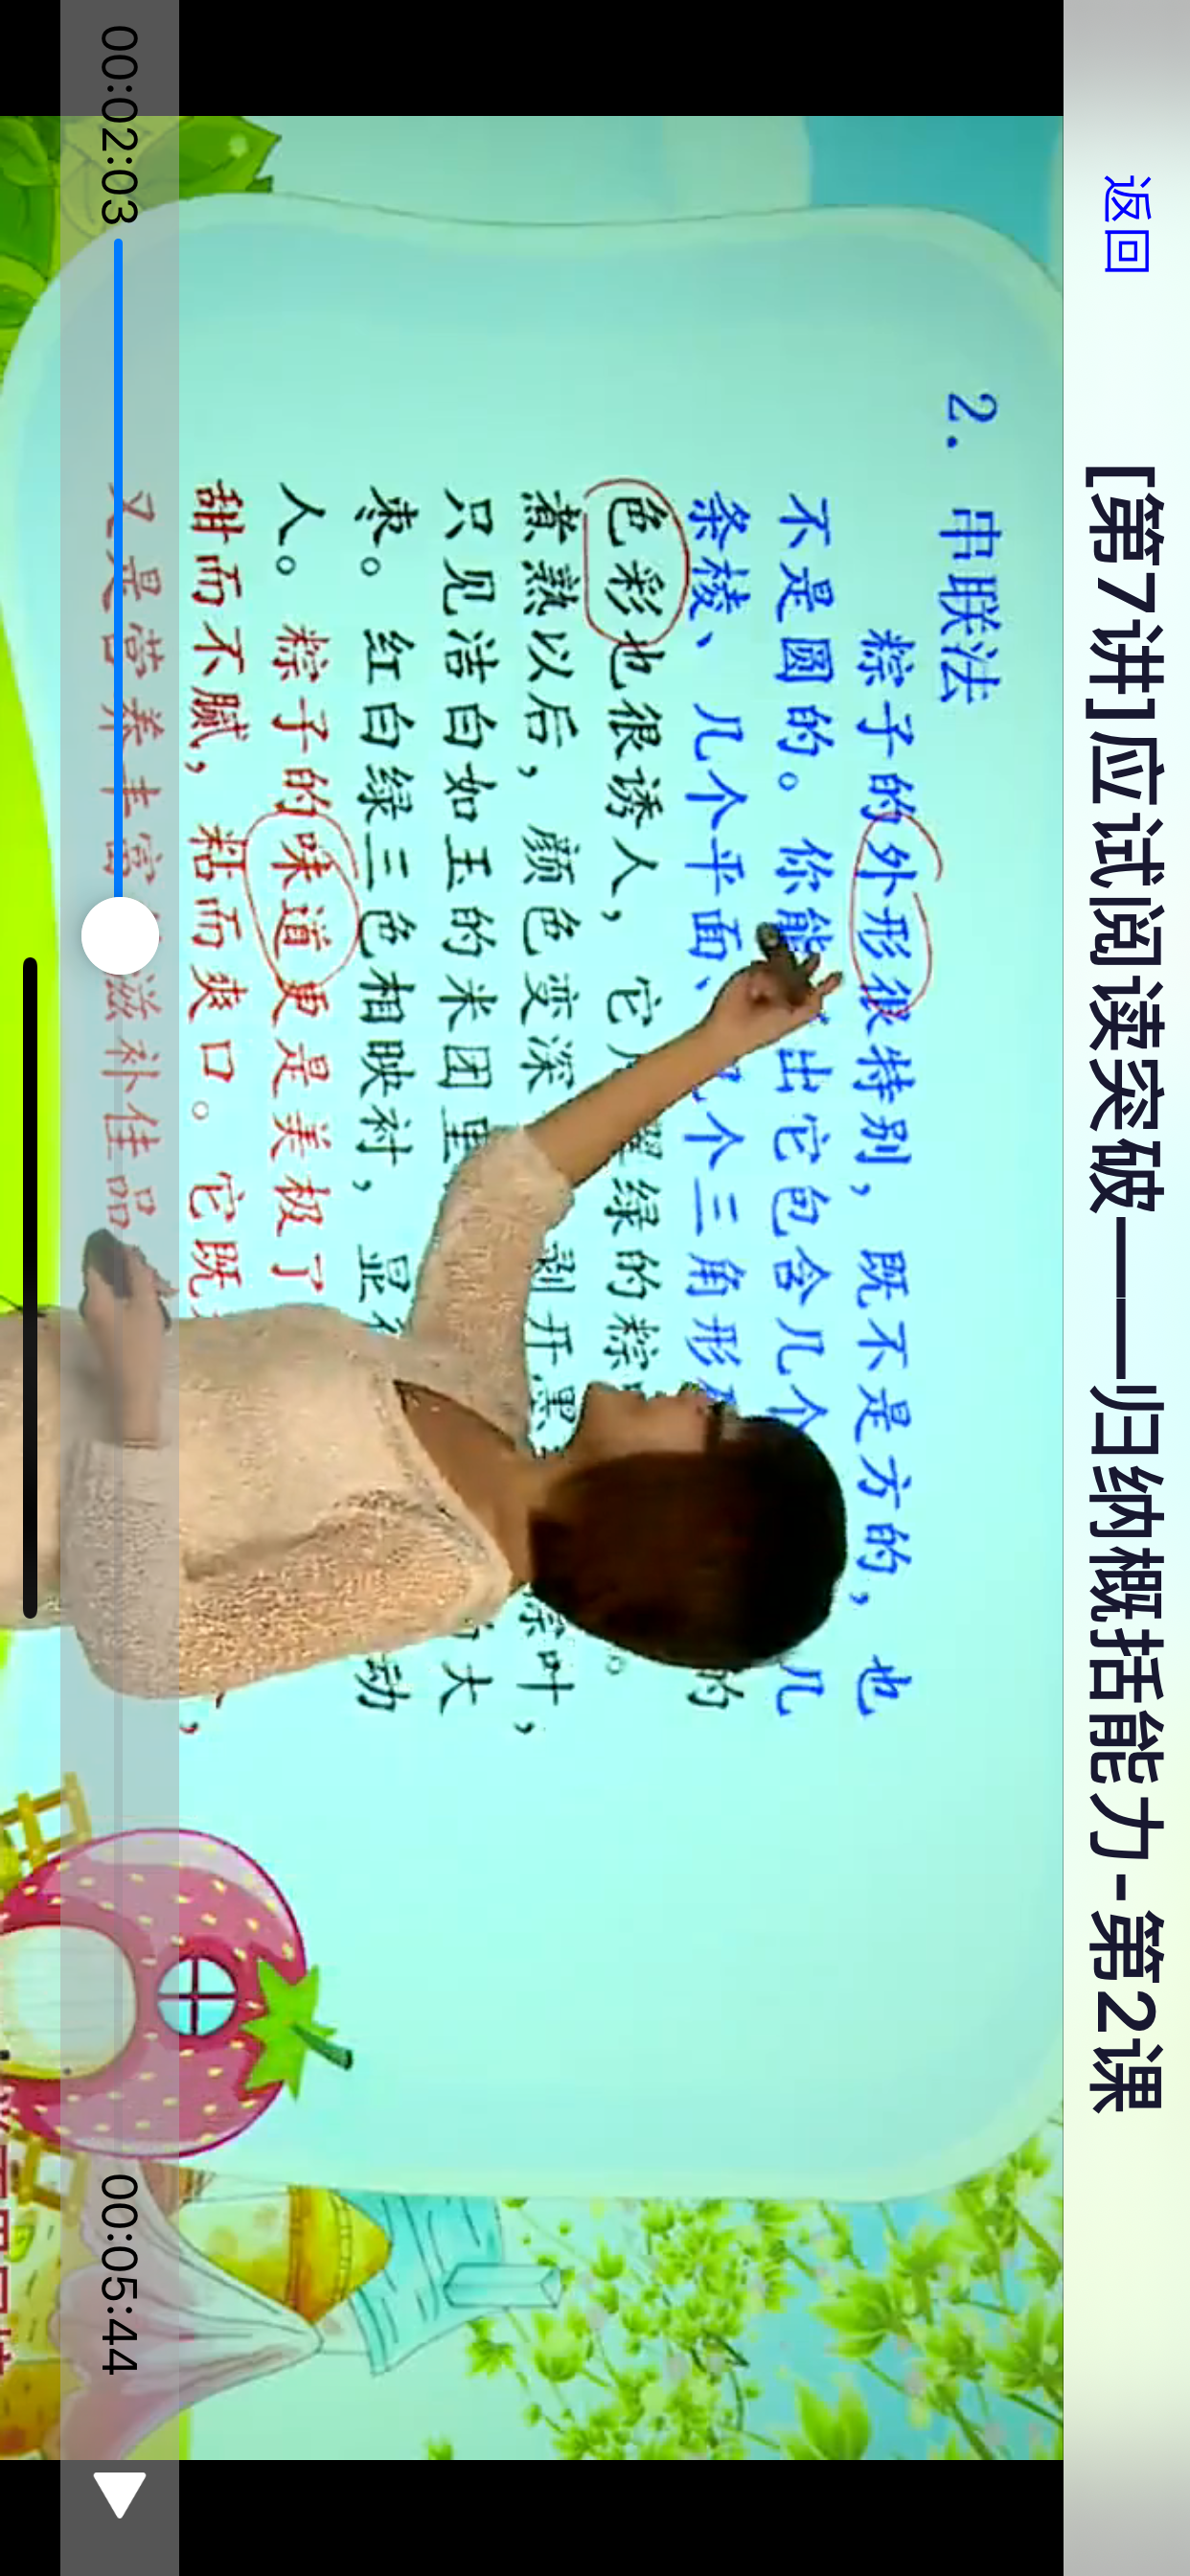 返回
[第7讲]应试阅读突破——归纳概括能力-第2课
2. 串联法
粽子的外形很特别，既不是方的，也
不是圆的。你能 出它包含几个 几
条棱、几个平面、 个三角形 的
色彩也很诱人，它 绿的粽
煮熟以后，颜色变深 剥开黑 叶，
只见洁白如玉的米团里 大
枣。红白绿三色相映衬，显 动
人。 粽子的味道更是美极了
甜而不腻，粘而爽口。它既
又是营养丰富 滋补佳品
00:02:03
00:05:44